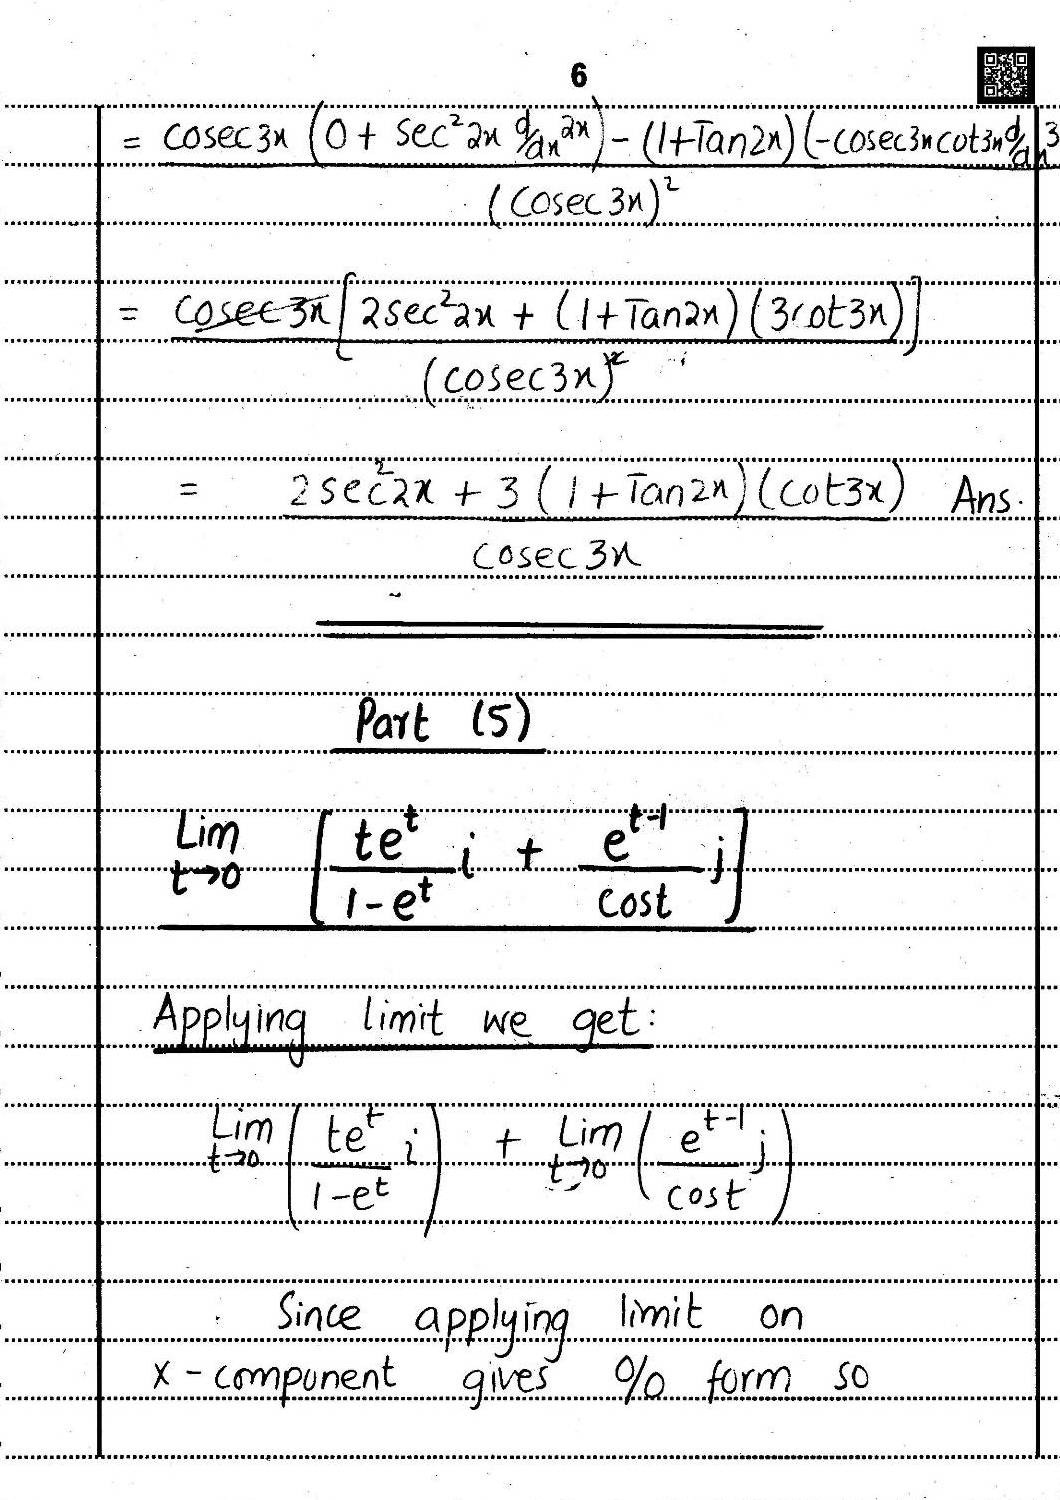 6
= cosec3x (0 + sec²2x d/dx 2x) - (1+Tan2x) (-cosec3x cot3x d/dx 3
(cosec3x)²
= cosec3x [2sec²2x + (1+Tan2x) (3cot3x)]
(cosec3x)²
= 2sec²2x + 3 (1+Tan2x) (cot3x) Ans.
cosec3x
Part (5)
Lim t→0 [te^t / 1-e^t i + e^t-1 / cost j]
Applying limit we get:
Lim t→0 (te^t / 1-e^t i) + Lim t→0 (e^t-1 / cost j)
Since applying limit on
x-component gives 0/0 form so